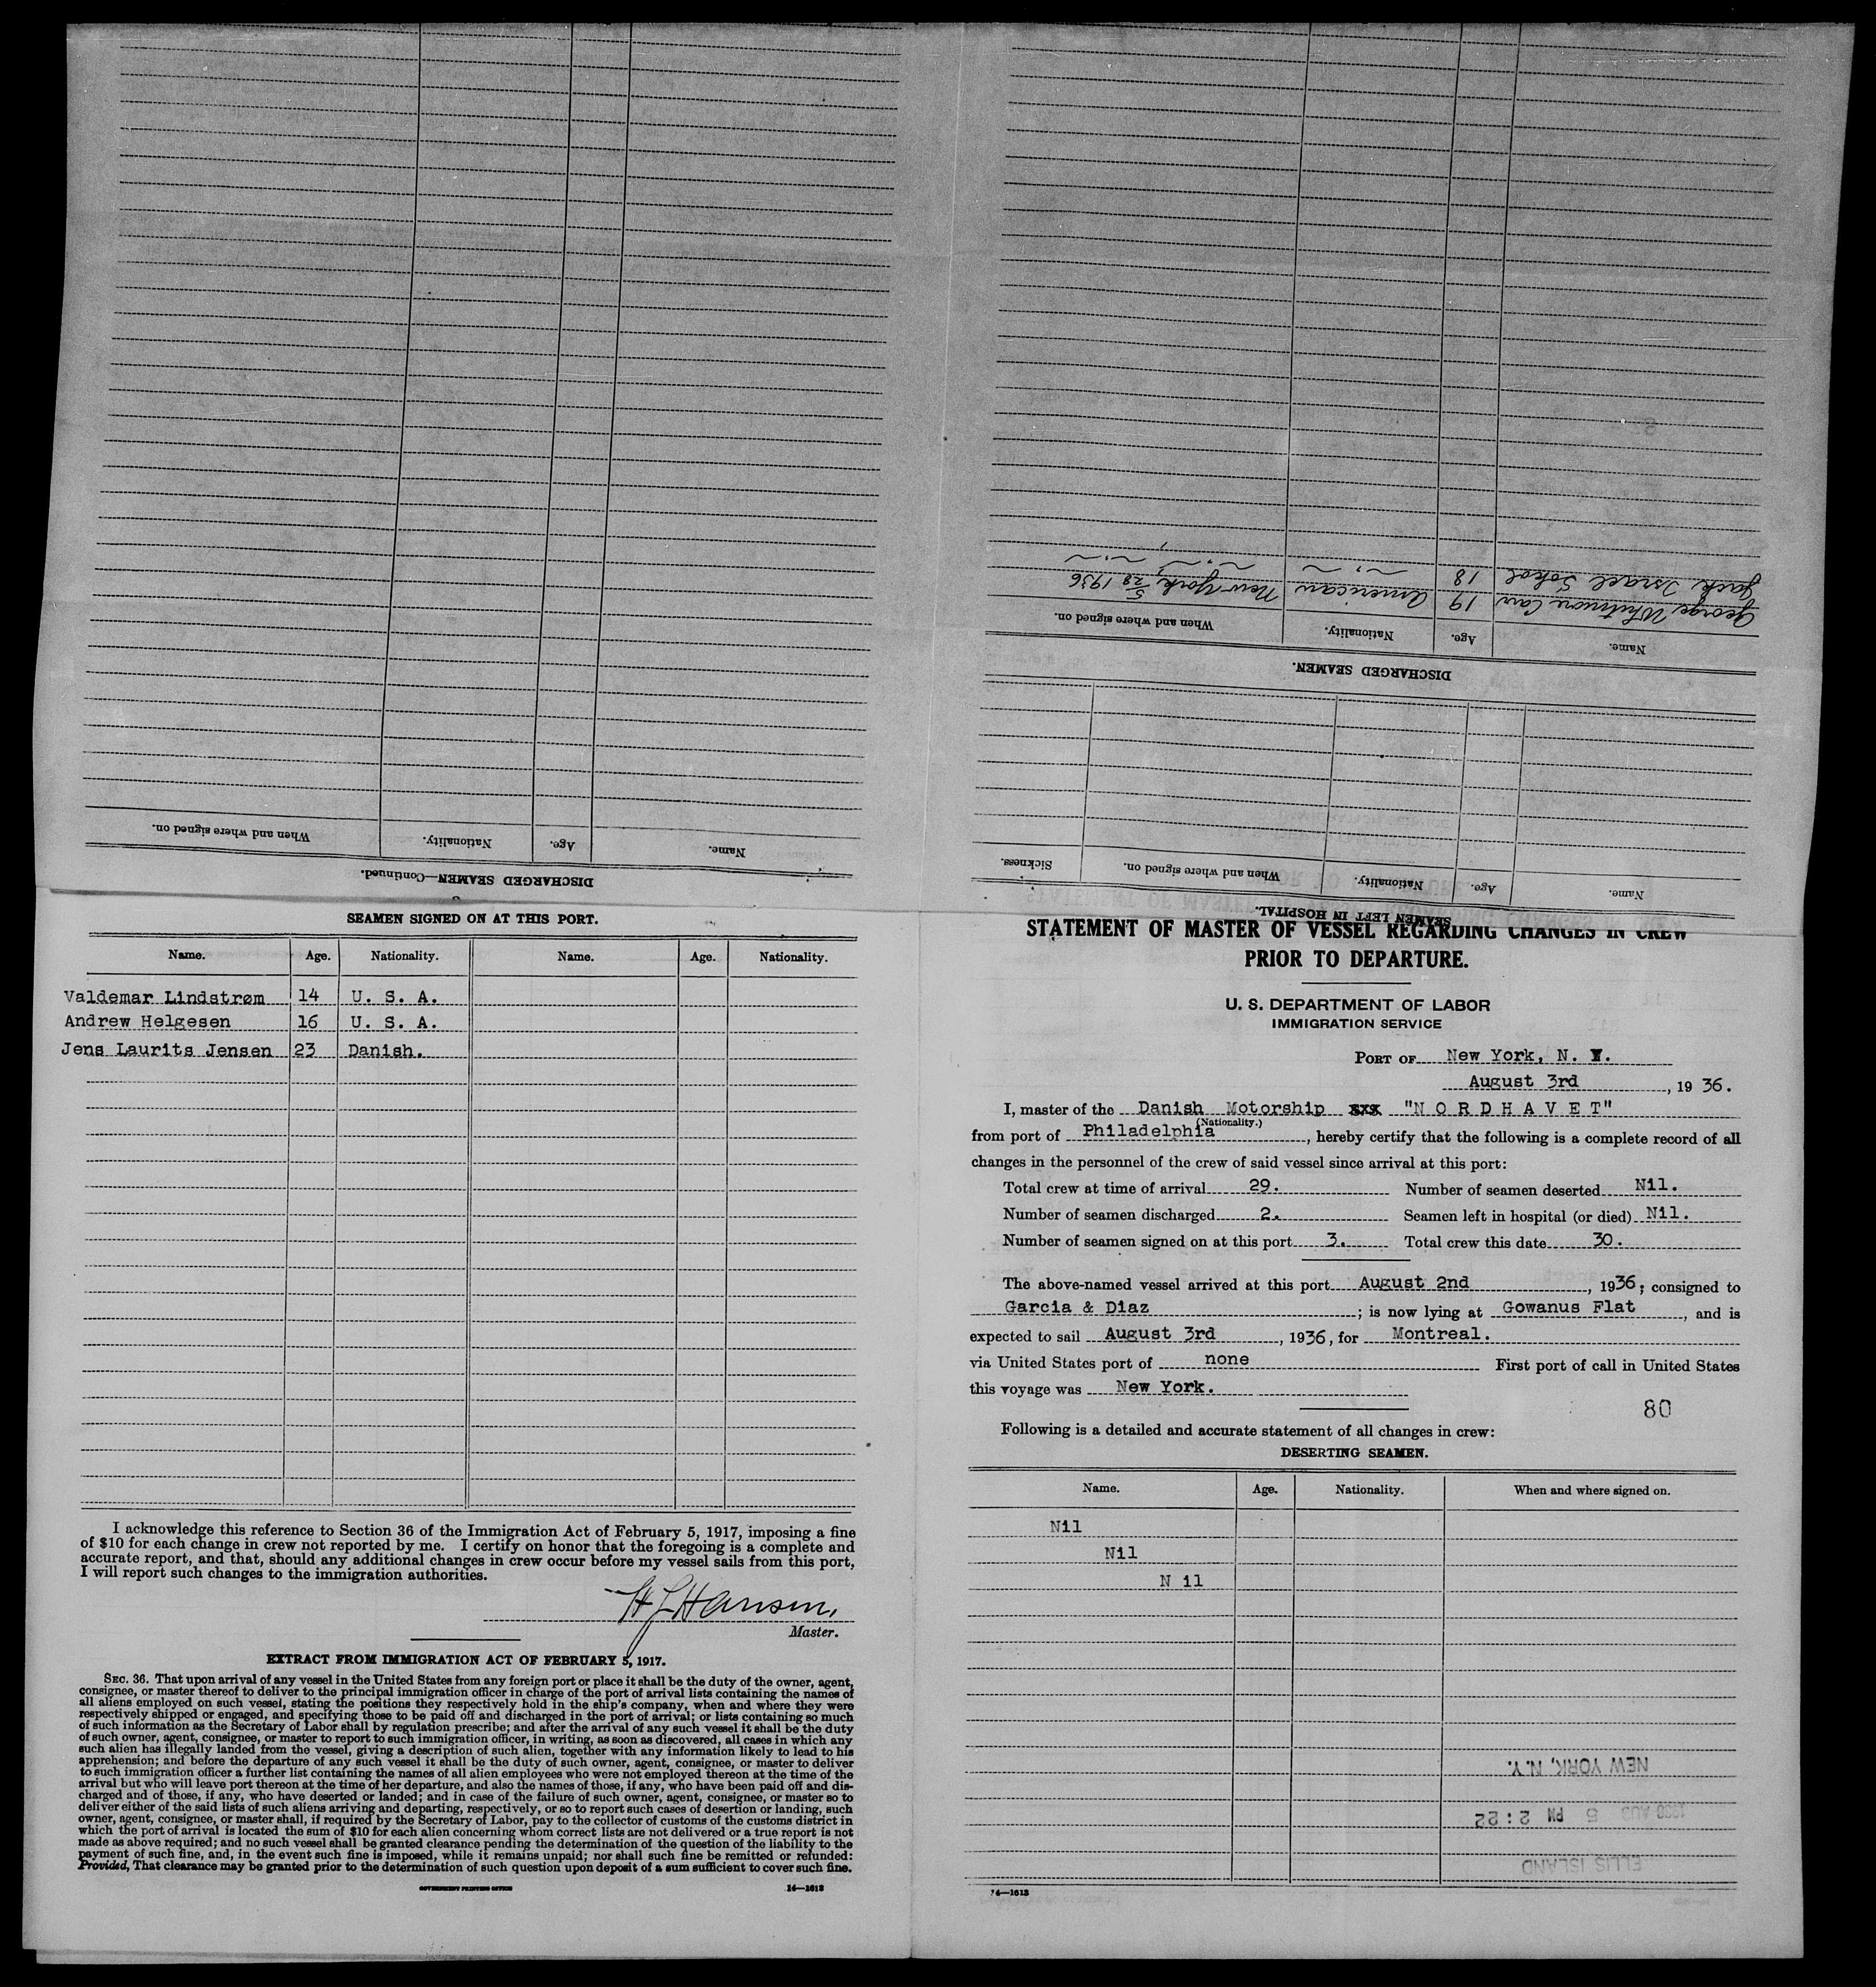 DISCHARGED SEAMEN—Continued.
Name. Age. Nationality. When and where signed on.
SEAMEN LEFT IN HOSPITAL.
Name. Age. Nationality. When and where signed on. Sickness.
DISCHARGED SEAMEN.
Name. Age. Nationality. When and where signed on.
George Whitmore Carr 19 American New York, 5/28 1936
Jack Israel Sokol 18 " " "
SEAMEN SIGNED ON AT THIS PORT.
Name. Age. Nationality. Name. Age. Nationality.
Valdemar Lindstrøm 14 U. S. A.
Andrew Helgesen 16 U. S. A.
Jens Laurits Jensen 23 Danish.
I acknowledge this reference to Section 36 of the Immigration Act of February 5, 1917, imposing a fine
of $10 for each change in crew not reported by me. I certify on honor that the foregoing is a complete and
accurate report, and that, should any additional changes in crew occur before my vessel sails from this port,
I will report such changes to the immigration authorities.
H L Hansen,
Master.
EXTRACT FROM IMMIGRATION ACT OF FEBRUARY 5, 1917.
SEC. 36. That upon arrival of any vessel in the United States from any foreign port or place it shall be the duty of the owner, agent,
consignee, or master thereof to deliver to the principal immigration officer in charge of the port of arrival lists containing the names of
all aliens employed on such vessel, stating the positions they respectively hold in the ship's company, when and where they were
respectively shipped or engaged, and specifying those to be paid off and discharged in the port of arrival; or lists containing so much
of such information as the Secretary of Labor shall by regulation prescribe; and after the arrival of any such vessel it shall be the duty
of such owner, agent, consignee, or master to report to such immigration officer, in writing, as soon as discovered, all cases in which any
such alien has illegally landed from the vessel, giving a description of such alien, together with any information likely to lead to his
apprehension; and before the departure of any such vessel it shall be the duty of such owner, agent, consignee, or master to deliver
to such immigration officer a further list containing the names of all alien employees who were not employed thereon at the time of the
arrival but who will leave port thereon at the time of her departure, and also the names of those, if any, who have been paid off and dis-
charged and of those, if any, who have deserted or landed; and in case of the failure of such owner, agent, consignee, or master so to
deliver either of the said lists of such aliens arriving and departing, respectively, or so to report such cases of desertion or landing, such
owner, agent, consignee, or master shall, if required by the Secretary of Labor, pay to the collector of customs of the customs district in
which the port of arrival is located the sum of $10 for each alien concerning whom correct lists are not delivered or a true report is not
made as above required; and no such vessel shall be granted clearance pending the determination of the question of the liability to the
payment of such fine, and, in the event such fine is imposed, while it remains unpaid; nor shall such fine be remitted or refunded:
Provided, That clearance may be granted prior to the determination of such question upon deposit of a sum sufficient to cover such fine.
GOVERNMENT PRINTING OFFICE 14—1613
STATEMENT OF MASTER OF VESSEL REGARDING CHANGES IN CREW
PRIOR TO DEPARTURE.
U. S. DEPARTMENT OF LABOR
IMMIGRATION SERVICE
PORT OF New York, N. Y.
August 3rd, 19 36.
I, master of the Danish Motorship xxx "N O R D H A V E T"
(Nationality.)
from port of Philadelphia, hereby certify that the following is a complete record of all
changes in the personnel of the crew of said vessel since arrival at this port:
Total crew at time of arrival 29. Number of seamen deserted Nil.
Number of seamen discharged 2. Seamen left in hospital (or died) Nil.
Number of seamen signed on at this port 3. Total crew this date 30.
The above-named vessel arrived at this port August 2nd, 1936; consigned to
Garcia & Diaz; is now lying at Gowanus Flat, and is
expected to sail August 3rd, 1936, for Montreal.
via United States port of none First port of call in United States
this voyage was New York.
80
Following is a detailed and accurate statement of all changes in crew:
DESERTING SEAMEN.
Name. Age. Nationality. When and where signed on.
Nil
Nil
N il
NEW YORK, N.Y.
1936 AUG 5 PM 2:22
ELLIS ISLAND
14—1613